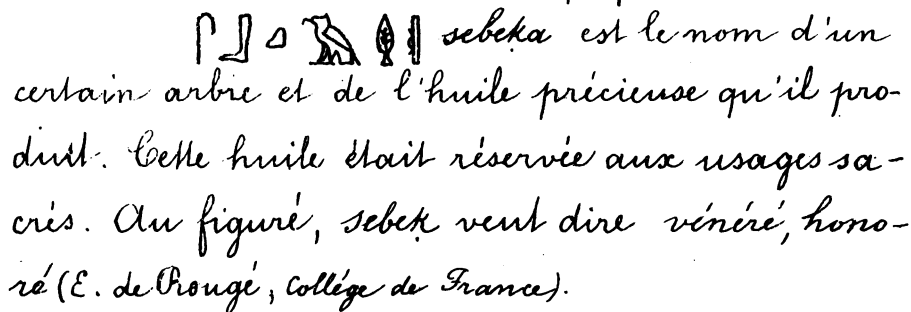 𓋴𓃀𓈎𓄿𓆭𓏤 sebeḳa est le nom d'un
certain arbre et de l'huile précieuse qu'il pro-
duit. Cette huile était réservée aux usages sa-
crés. Au figuré, sebeḳ veut dire vénéré, hono-
ré (E. de Rougé, Collége de France).